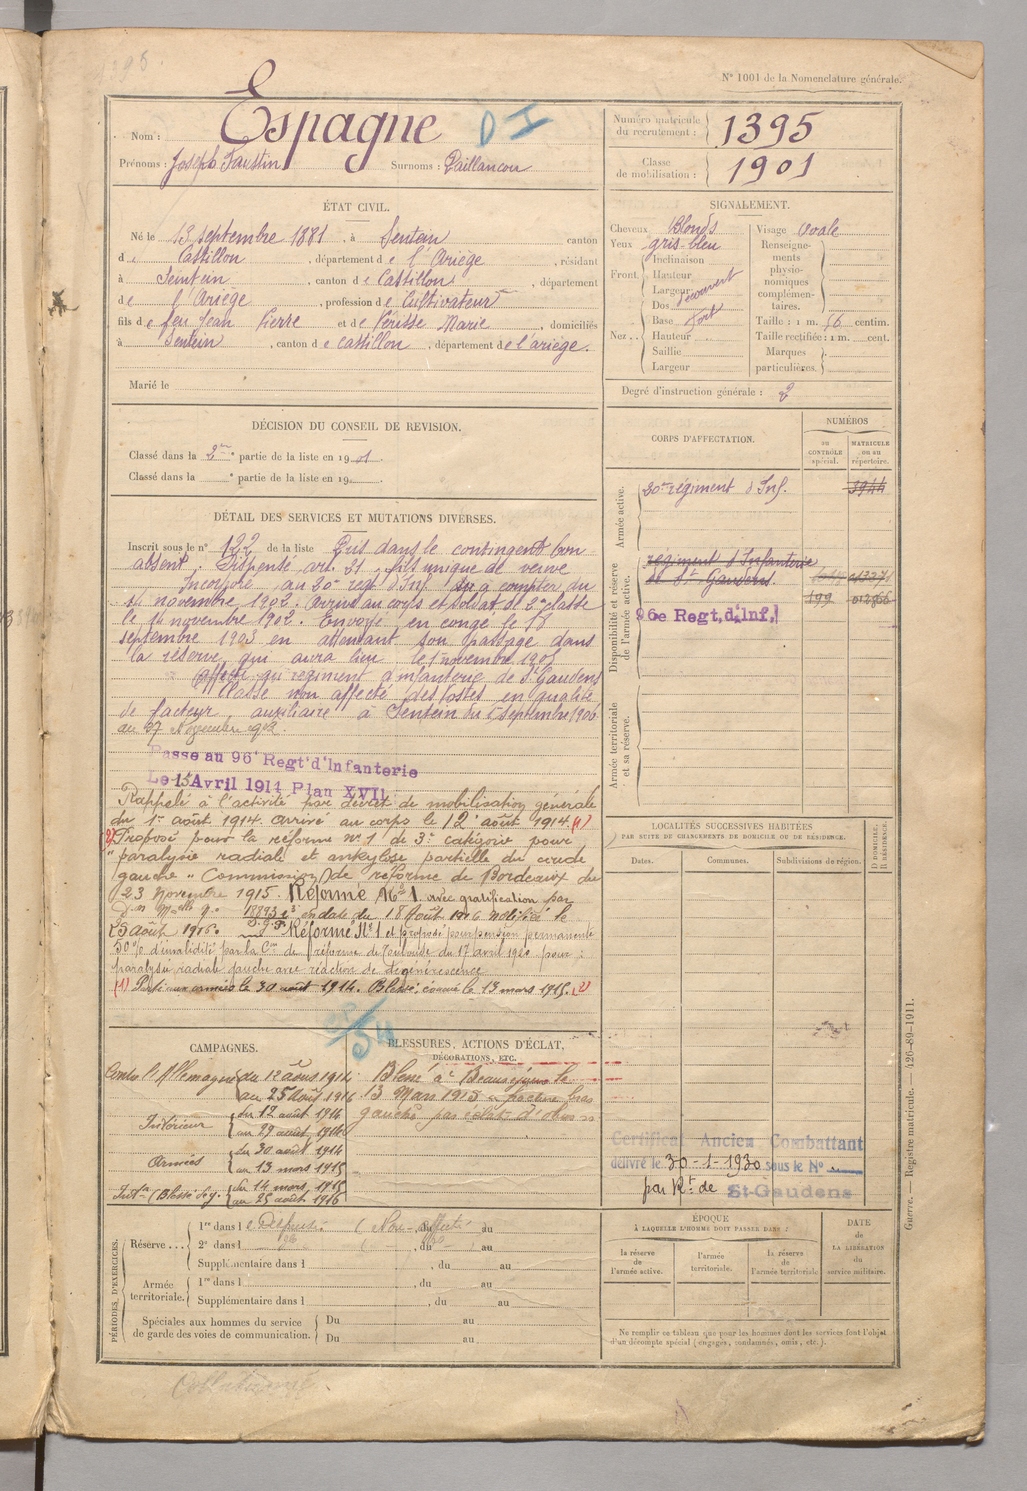 N° 1001 de la Nomenclature générale.
Nom : Espagne D I
Prénoms : Joseph Faustin Surnoms : Paillancou
Numéro matricule du recrutement : 1395
Classe de mobilisation : 1901
ÉTAT CIVIL.
Né le 13 septembre 1881, à Sentein canton
de Castillon, département de l'Ariège, résidant
à Sentein, canton de Castillon, département
de l'Ariège, profession de Cultivateur
fils de feu Jean Pierre et de Périsse Marie, domiciliés
à Sentein, canton de Castillon, département de l'ariège.
Marié le
SIGNALEMENT.
Cheveux Blonds
Yeux gris-bleu
Front. Inclinaison
Hauteur
Largeur découvert
Nez. Dos
Base fort
Hauteur
Saillie
Largeur
Visage Ovale
Renseignements physionomiques complémentaires.
Taille : 1 m. 56 centim.
Taille rectifiée : 1 m. cent.
Marques particulières.
Degré d'instruction générale : 2
DÉCISION DU CONSEIL DE REVISION.
Classé dans la 2e partie de la liste en 1901.
Classé dans la e partie de la liste en 190 .
CORPS D'AFFECTATION.
NUMÉROS
DU CONTRÔLE spécial.
MATRICULE OU AU répertoire.
Armée active.
20e régiment d'Inf. 3944
Disponibilité et réserve de l'armée active.
régiment d'Infanterie
de St Gaudens.
96e Regt. d'Inf. 199 012966
Armée territoriale et sa réserve.
DÉTAIL DES SERVICES ET MUTATIONS DIVERSES.
Inscrit sous le n° 122 de la liste Pris dans le contingent bon
absent. Dispensé art. 21, fils unique de veuve
Incorporé au 20e regt d'Inf. à compter du
14 novembre 1902. Arrivé au corps et soldat de 2e classe
le 14 novembre 1902. Envoyé en congé le 18
septembre 1903 en attendant son passage dans
la réserve qui aura lieu le 1er novembre 1905
Affecté au régiment d'infanterie de St Gaudens
Classé non affecté des Postes en qualité
de facteur auxiliaire à Sentein du 5 septembre 1906
au 27 Novembre
Passe au 96e Regt d'Infanterie
Le 15 Avril 1914 Plan XVII.
Rappelé à l'activité par décret de mobilisation générale
du 1er août 1914. arrivé au corps le 12 août 1914. (1)
(2) Proposé pour la réforme n° 1 de 3e catégorie pour
"paralysie radiale et ankylose partielle du coude
gauche". Commission de réforme de Bordeaux du
23 Novembre 1915. Réformé N° 1 avec gratification par
Don Melle n° 18893 en date du 18 Août 1916 notifiée le
25 août 1916. Réformé N° 1 et proposé pour pension permanente
50 % d'invalidité par la Con de réforme de Toulouse du 17 avril 1920 pour :
paralysie radiale gauche avec réaction de dégénérescence
(1) Parti aux armées le 30 août 1914. Blessé, évacué le 13 mars 1915. (2)
LOCALITÉS SUCCESSIVES HABITÉES
PAR SUITE DE CHANGEMENTS DE DOMICILE OU DE RÉSIDENCE.
Dates. Communes. Subdivisions de région.
D DOMICILE. R RÉSIDENCE.
CAMPAGNES.
Contre l'Allemagne du 12 août 1914
au 25 Août 1916
Intérieur du 12 août 1914
au 29 août 1914
Armées du 30 août 1914
au 13 mars 1915
Intr (Blessé de g. du 14 mars 1915
au 25 août 1916
54
BLESSURES, ACTIONS D'ÉCLAT,
DÉCORATIONS, ETC.
Blessé à Beauséjour le
13 Mars 1915 " fracture bras
gauche par éclats d'obus "
Certificat Ancien Combattant
délivré le 30-1-1930 sous le N°
par Rt de St-Gaudens
PÉRIODES D'EXERCICES.
Réserve... 1re dans l e Dispensé (Non-affecté au
2e dans l , du au
Supplémentaire dans l , du au
Armée territoriale. 1re dans l , du au
Supplémentaire dans l , du au
Spéciales aux hommes du service de garde des voies de communication. Du au
Du au
ÉPOQUE
À LAQUELLE L'HOMME DOIT PASSER DANS :
la réserve de l'armée active.
l'armée territoriale.
la réserve de l'armée territoriale
DATE de LA LIBÉRATION du service militaire.
Ne remplir ce tableau que pour les hommes dont les services font l'objet
d'un décompte spécial (engagés, condamnés, omis, etc.).
Guerre. — Registre matricule. — 426-89-1911.